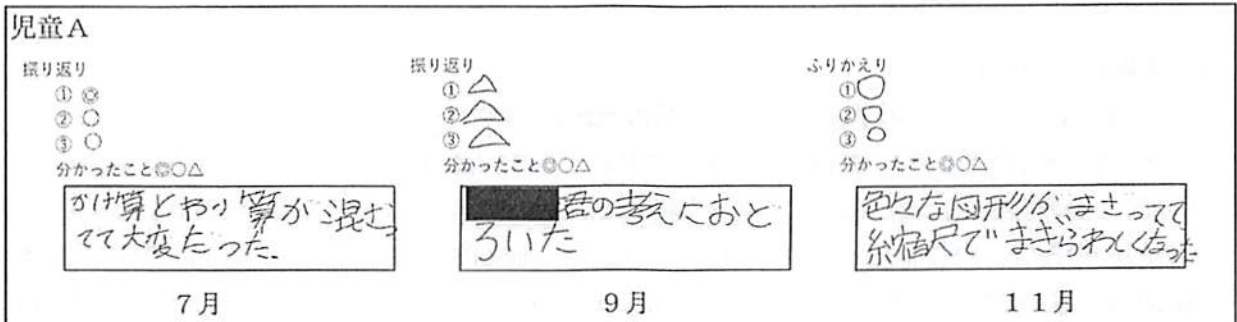 児童A
振り返り
① ◎
② ○
③ ○
分かったこと◎○△
かけ算とわり算が混ざっ
てて大変だった。
7月
振り返り
① △
② △
③ △
分かったこと◎○△
君の考えにおど
ろいた
9月
ふりかえり
① ○
② ○
③ ○
分かったこと◎○△
色々な図形がまざってて
縮尺でまぎらわしくなった
11月